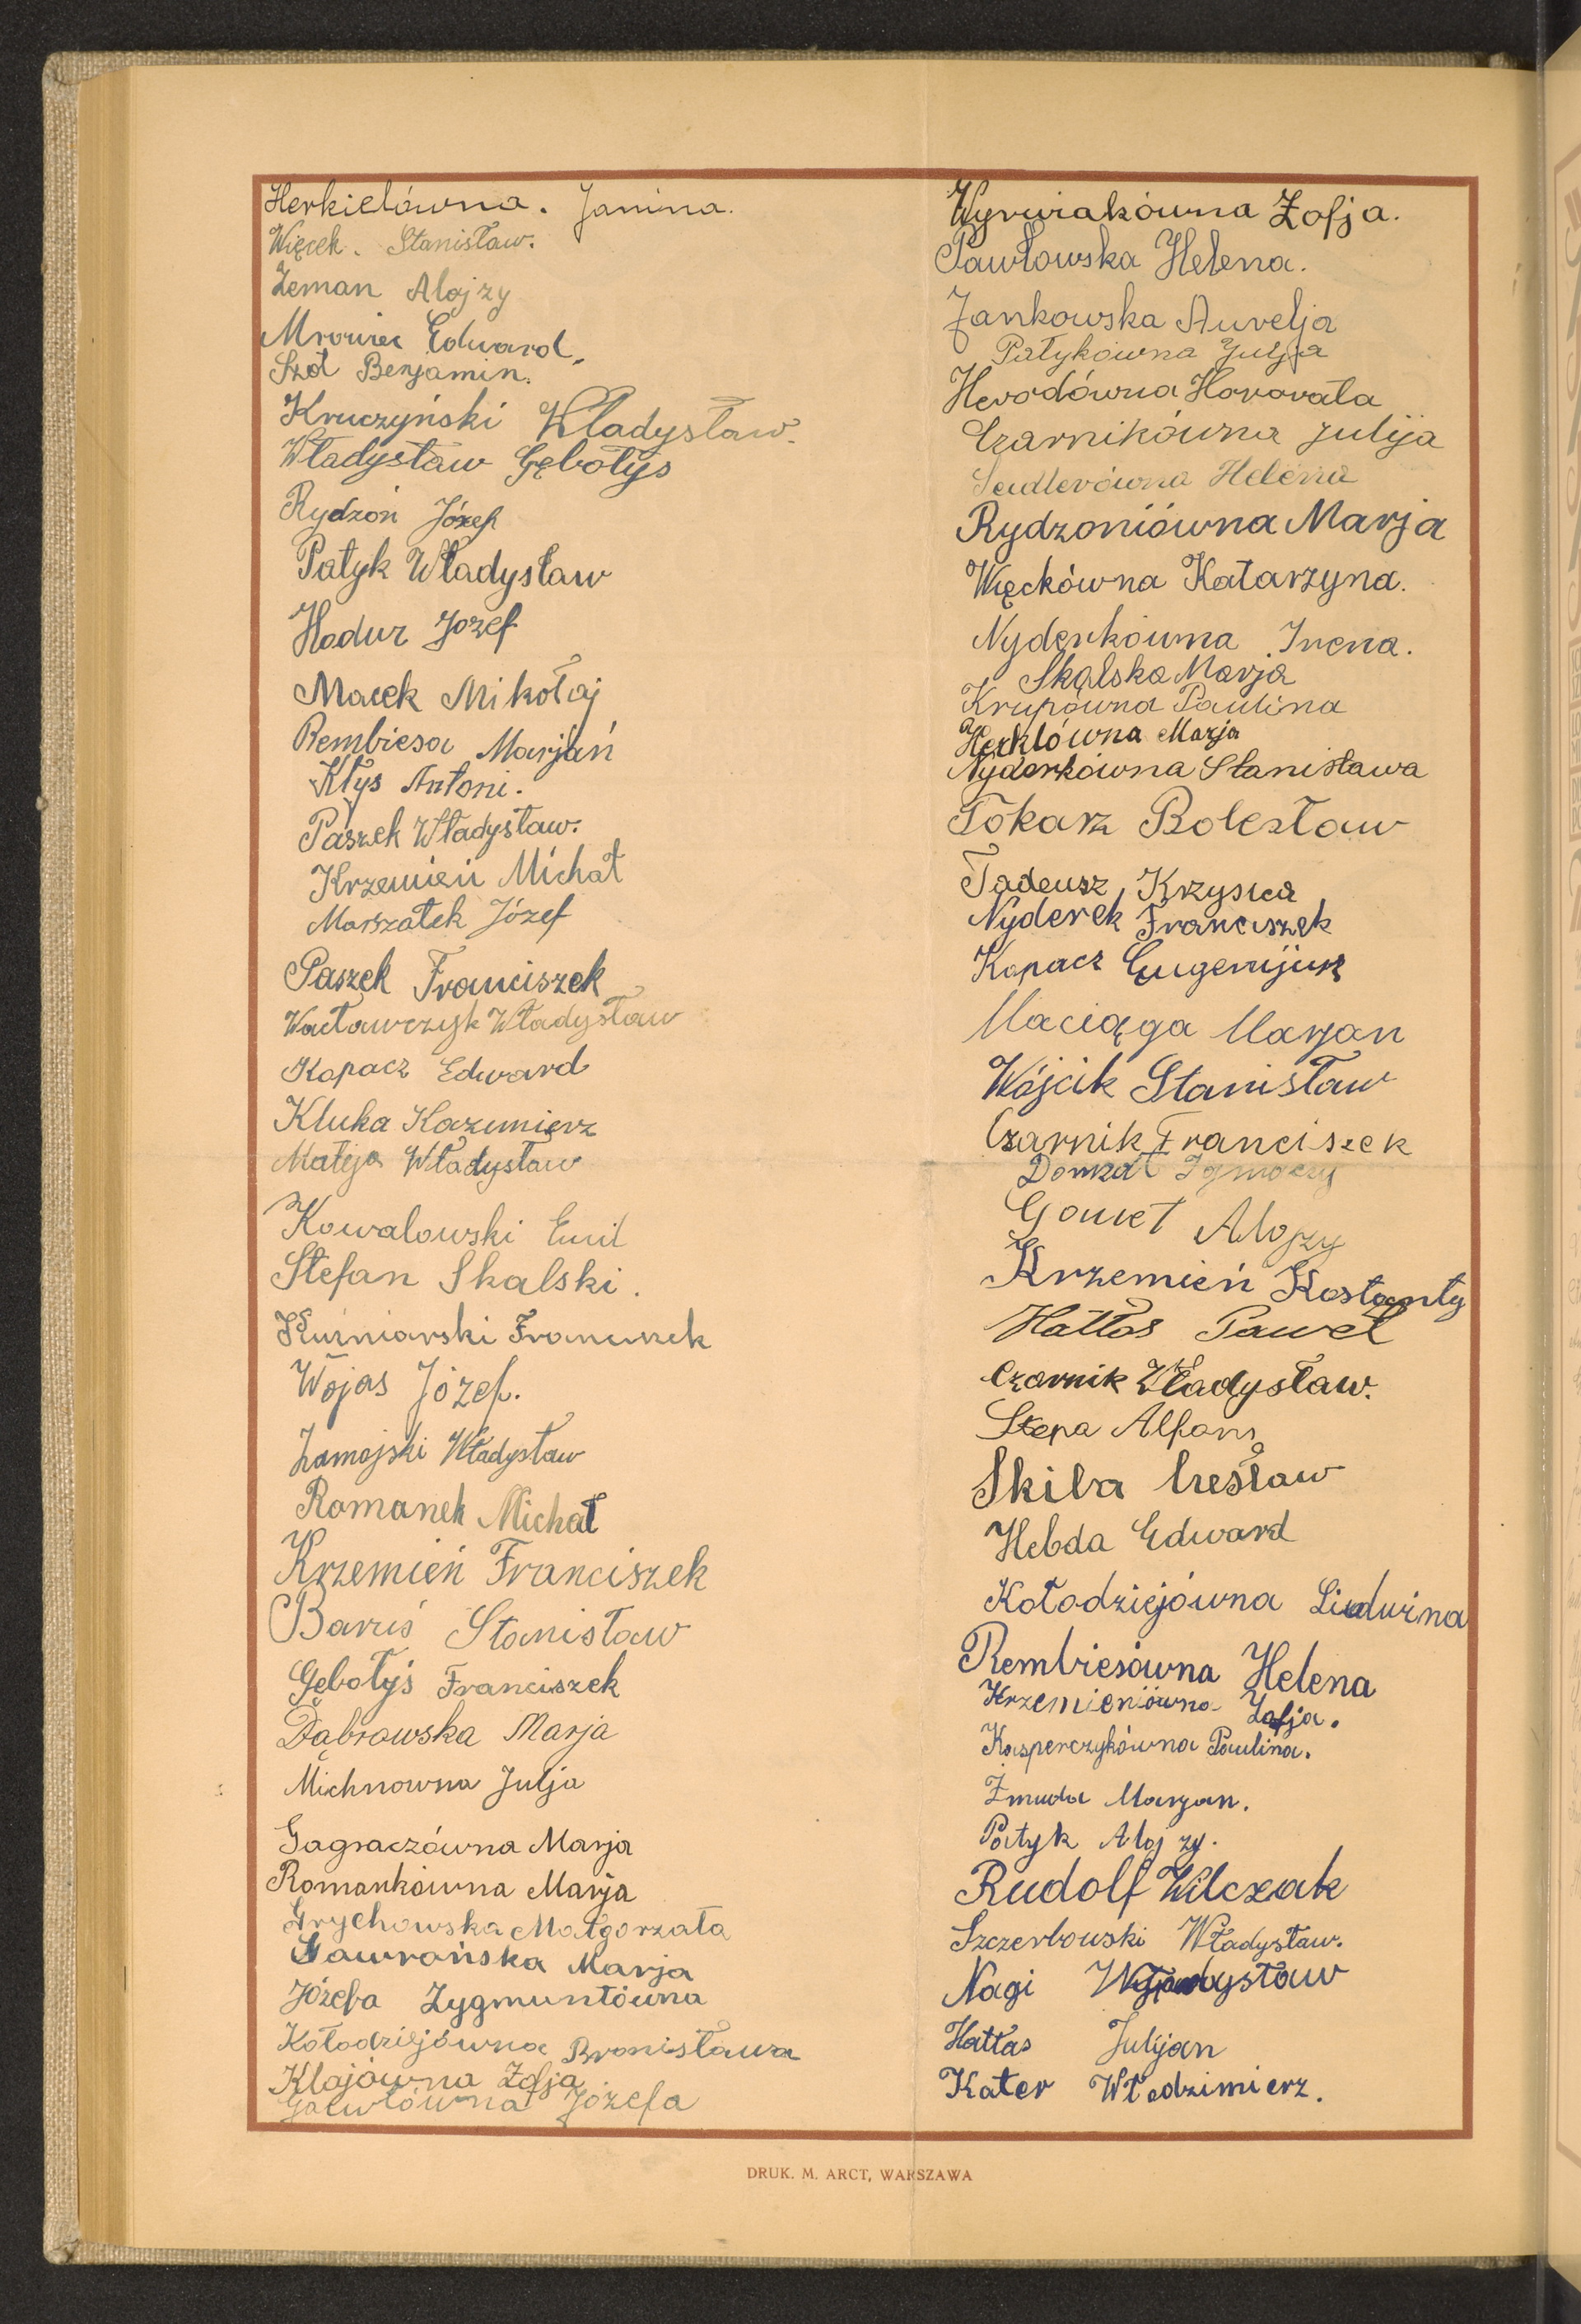 Herkielówna. Janina.
Więcek. Stanisław.
Zeman Alojzy
Mrowiec Edward.
Szot Benjamin.
Kruczyński Władysław.
Władysław Gębołyś
Rydzoń Józef
Patyk Władysław
Hodur Jozef
Macek Mikołaj
Rembiesa Marjań
Kłys Antoni.
Paszek Władysław.
Krzemień Michał
Marszałek Józef
Paszek Franciszek
Wacławczyk Władysław
Kopacz Edward
Kluka Kazimierz
Mateja Władysław
Kowalowski Emil
Stefan Skalski.
Kuźniarski Franciszek
Wojas Józef.
Zamojski Władysław
Romanek Michał
Krzemień Franciszek
Baruś Stanisław
Gębołyś Franciszek
Dąbrowska Marja
Michnowna Julja
Gagraczówna Marja
Romankówna Marja
Grychowska Małgorzata
Gawrońska Marja
Józefa Zygmuntówna
Kołodziejówna Bronisława
Klajówna Zofja
Józefa
Wyrwiakówna Zofja.
Pawłowska Helena.
Jankowska Aurelja
Patykówna Julja
Herodówna Horovata
Czarnikówna Julija
Sendlerówna Helena
Rydzoniówna Marja
Więckówna Katarzyna.
Nyderkówna Irena.
Skalska Marja
Krupówna Paulina
Herklówna Marja
Nyderkówna Stanisława
Tokarz Bolesław
Tadeusz Krzysica
Nyderek Franciszek
Kopacz Eugenijusz
Maciąga Marjan
Wójcik Stanisław
Czarnik Franciszek
Domzał Ignacy
Alojzy
Krzemień Kostanty
Hałłas Paweł
Czarnik Władysław.
Stepa Alfons
Skiba Czesław
Hebda Edward
Kołodziejówna Liudwina
Rembiesówna Helena
Krzemieniówna Zofja.
Kasperczykówna Paulina.
Żmuda Marjan.
Patyk Alojzy.
Rudolf Wilczak
Szczerbowski Władysław.
Nagi Władysław
Hałłas Julijan
Kater Włodzimierz.
DRUK. M. ARCT, WARSZAWA